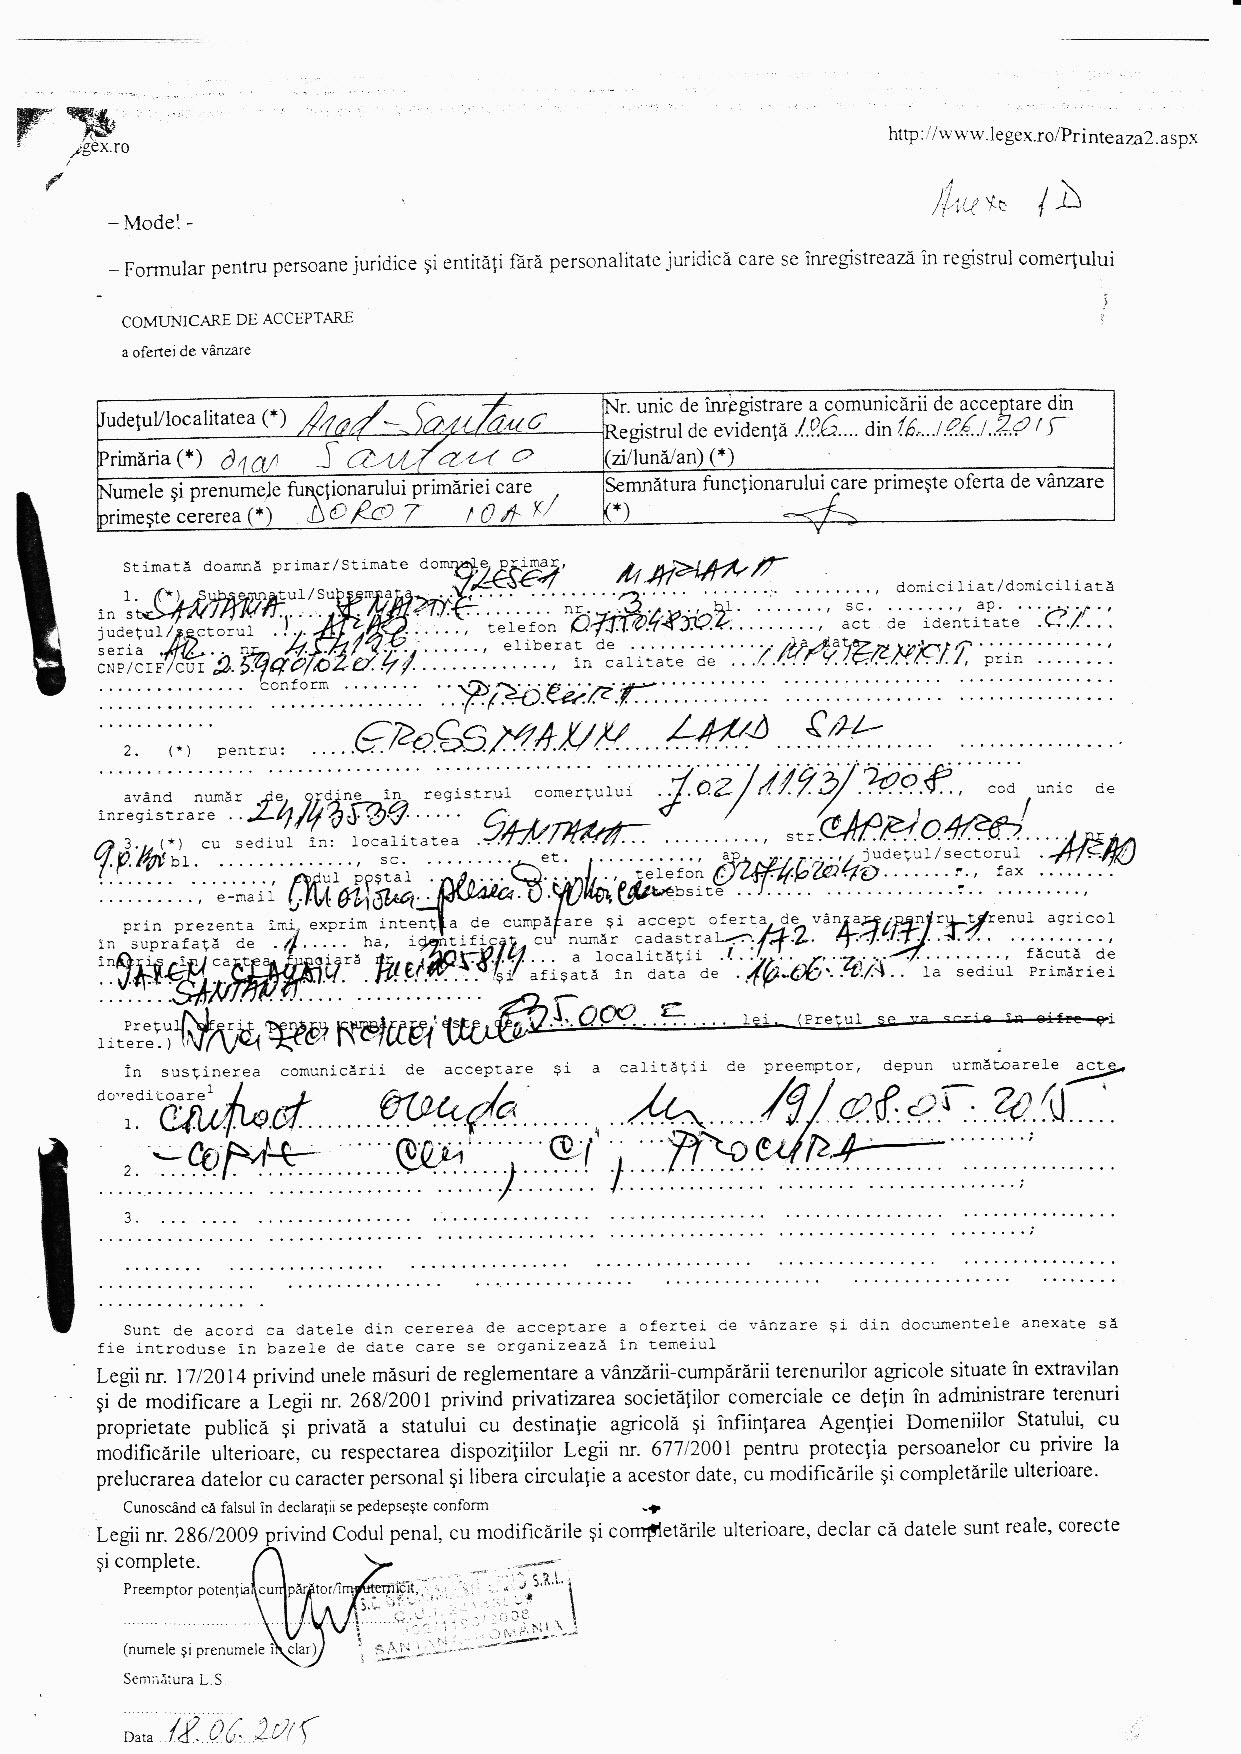 gex.ro
http://www.legex.ro/Printeaza2.aspx
Anexa 1D
– Model -
– Formular pentru persoane juridice şi entităţi fără personalitate juridică care se înregistrează în registrul comerţului
-
COMUNICARE DE ACCEPTARE
a ofertei de vânzare
Judeţul/localitatea (*) Arad-Santana
Nr. unic de înregistrare a comunicării de acceptare din
Registrul de evidenţă 106 din 16/06/2015
(zi/lună/an) (*)
Primăria (*) oras Santana
Numele şi prenumele funcţionarului primăriei care
primeşte cererea (*) DOROT IOAN
Semnătura funcţionarului care primeşte oferta de vânzare
(*)
Stimată doamnă primar/Stimate domnule primar,
1. (*) Subsemnatul/Subsemnata PLESEA MARIANA, domiciliat/domiciliată
în str SANTANA, 8 MARTIE nr. 3 bl. ........., sc. ........, ap. ........,
judeţul/sectorul ARAD, telefon, act de identitate C.I.
seria AR nr. 454196, eliberat de la data
CNP/CIF/CUI, în calitate de IMPUTERNICIT, prin
conform PROCURA
2. (*) pentru: GROSSMAXIM LAND SRL
având număr de ordine în registrul comerţului J02/1193/2008, cod unic de
înregistrare 24143539
3. (*) cu sediul în: localitatea SANTANA, str. CAPRIOAREI, nr.
bl. ............, sc. .........., et. ............, ap. ........, judeţul/sectorul ARAD
codul poştal, telefon 0257462040, fax
e-mail website
prin prezenta îmi exprim intenţia de cumpărare şi accept oferta de vânzare pentru terenul agricol
în suprafaţă de 1 ha, identificat cu număr cadastral
înscris în cartea funciară nr. a localităţii, făcută de
şi afişată în data de 16.06.2015 la sediul Primăriei
SANTANA
Preţul oferit pentru cumpărare este de 35.000 lei. (Preţul se va scrie în cifre şi
litere.)
În susţinerea comunicării de acceptare şi a calităţii de preemptor, depun următoarele acte
doveditoare1
1. contract arenda nr 19/08.05.2015
2. - COPIE CUI, CI, PROCURA
3.
Sunt de acord ca datele din cererea de acceptare a ofertei de vânzare şi din documentele anexate să
fie introduse în bazele de date care se organizează în temeiul
Legii nr. 17/2014 privind unele măsuri de reglementare a vânzării-cumpărării terenurilor agricole situate în extravilan
şi de modificare a Legii nr. 268/2001 privind privatizarea societăţilor comerciale ce deţin în administrare terenuri
proprietate publică şi privată a statului cu destinaţie agricolă şi înfiinţarea Agenţiei Domeniilor Statului, cu
modificările ulterioare, cu respectarea dispoziţiilor Legii nr. 677/2001 pentru protecţia persoanelor cu privire la
prelucrarea datelor cu caracter personal şi libera circulaţie a acestor date, cu modificările şi completările ulterioare.
Cunoscând că falsul în declaraţii se pedepseşte conform
Legii nr. 286/2009 privind Codul penal, cu modificările şi completările ulterioare, declar că datele sunt reale, corecte
şi complete.
Preemptor potenţial cumpărător/împuternicit,
S.R.L.
SÂNTANA ROMÂNIA
(numele şi prenumele în clar)
Semnătura L.S
Data 18.06.2015